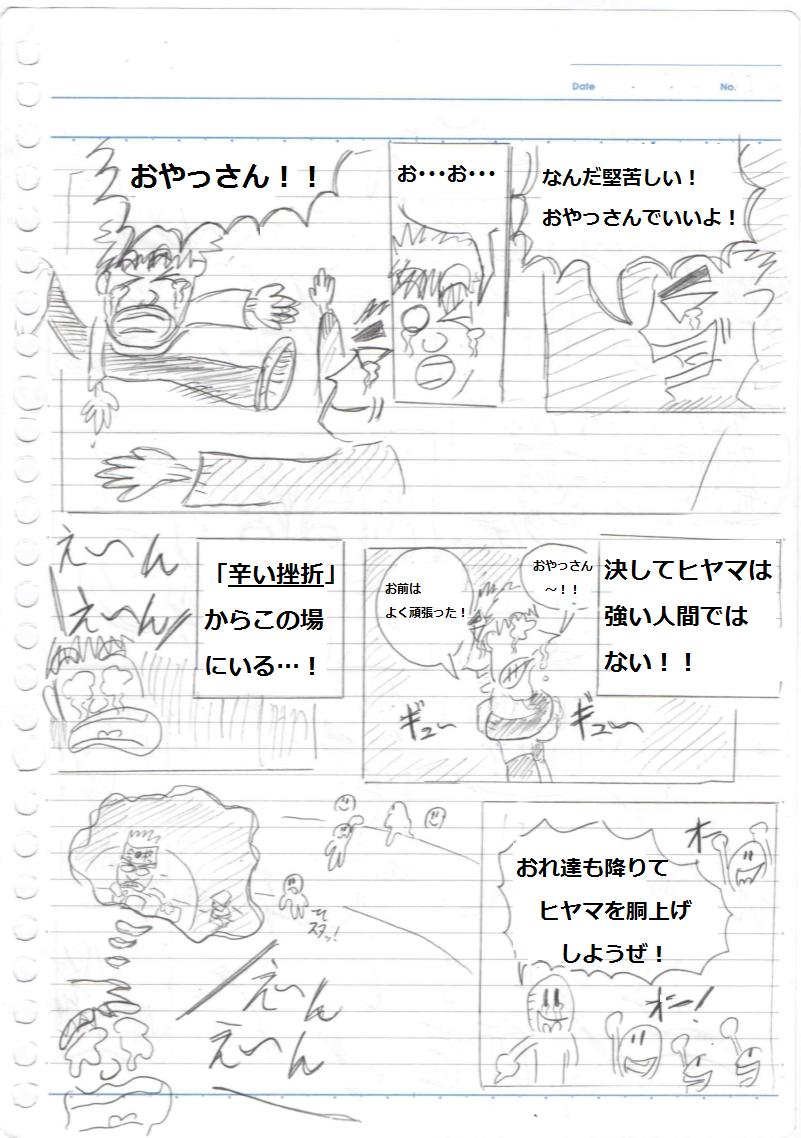 Date
No.
なんだ堅苦しい！
おやっさんでいいよ！
お・・・お・・・
おやっさん！！
決してヒヤマは
強い人間では
ない！！
おやっさん
～！！
お前は
よく頑張った！
ギュー
ギュー
「辛い挫折」
からこの場
にいる…！
え～ん
え～ん
おれ達も降りて
ヒヤマを胴上げ
しようぜ！
オー
オー！
え～ん
え～ん